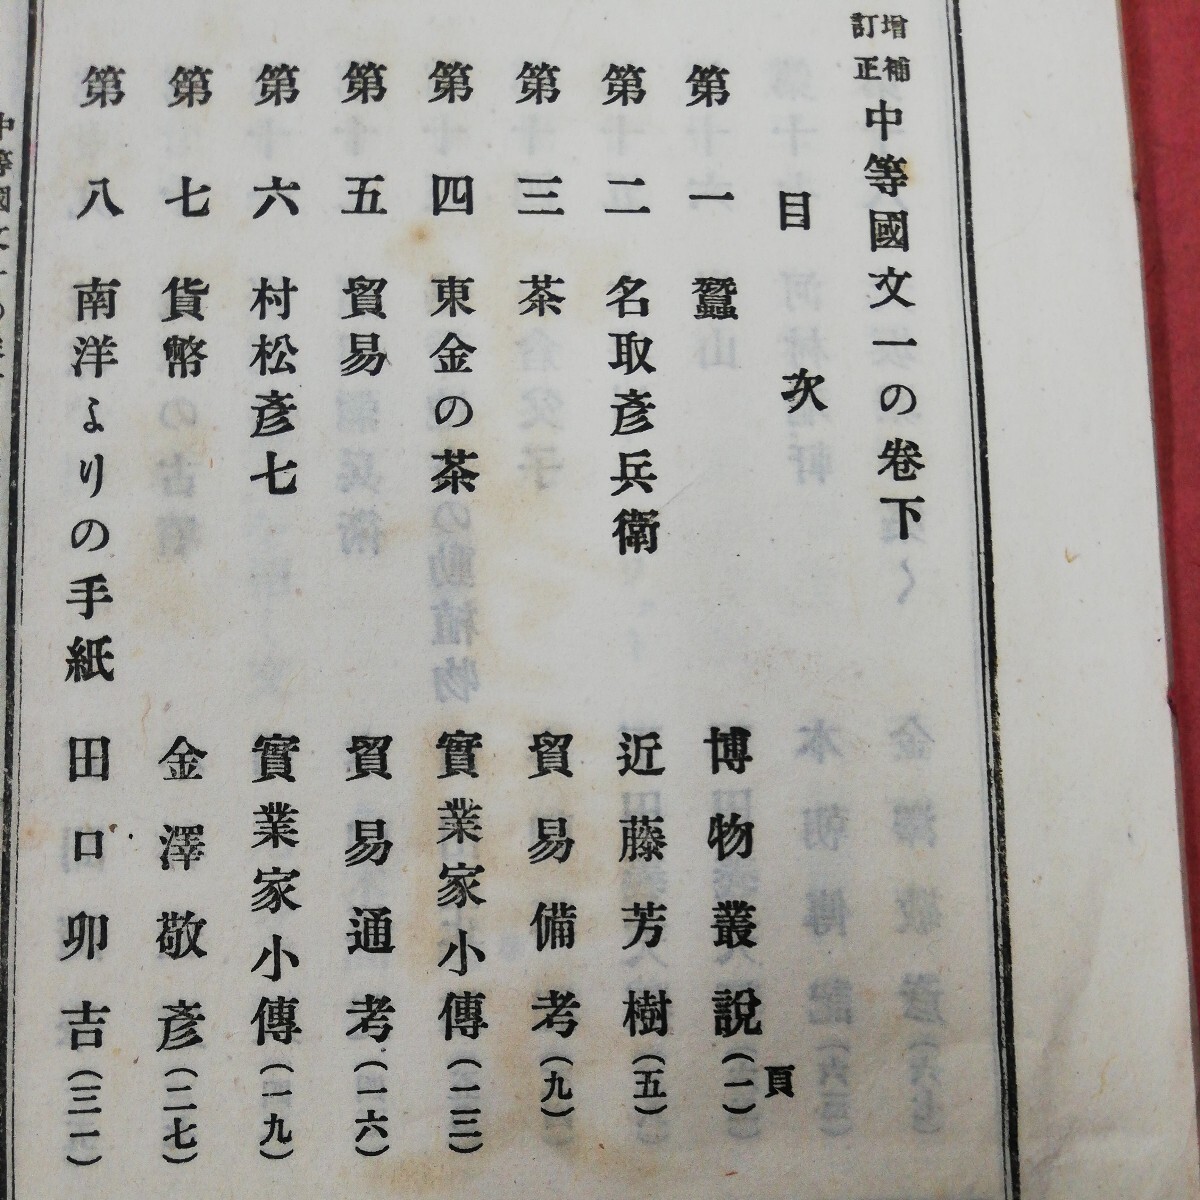 增補訂正中等國文一の卷下
目次
頁
第一 蠶 博物叢説(一)
第二 名取彦兵衞 近藤芳樹(五)
第三 茶 貿易備考(九)
第四 東金の茶 實業家小傳(一三)
第五 貿易 貿易通考(一六)
第六 村松彦七 實業家小傳(一九)
第七 貨幣 金澤敬彦(二七)
第八 南洋よりの手紙 田口卯吉(三一)
中等國文一の